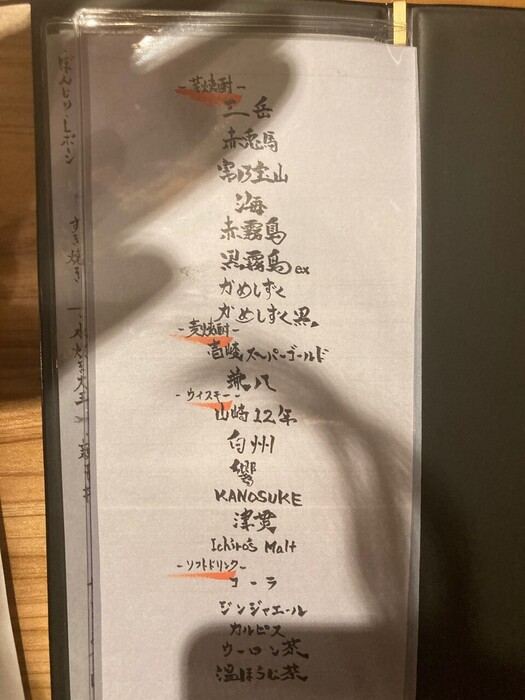 -芋焼酎-
三岳
赤兎馬
富乃宝山
海
赤霧島
黒霧島ex
かめしずく
かめしずく黒
-麦焼酎-
壱岐スーパーゴールド
兼八
-ウィスキー-
山崎12年
白州
響
KANOSUKE
津貫
Ichiro's Malt
-ソフトドリンク-
コーラ
ジンジャエール
カルピス
ウーロン茶
温ほうじ茶
ぼんじり・レポン
すき焼き